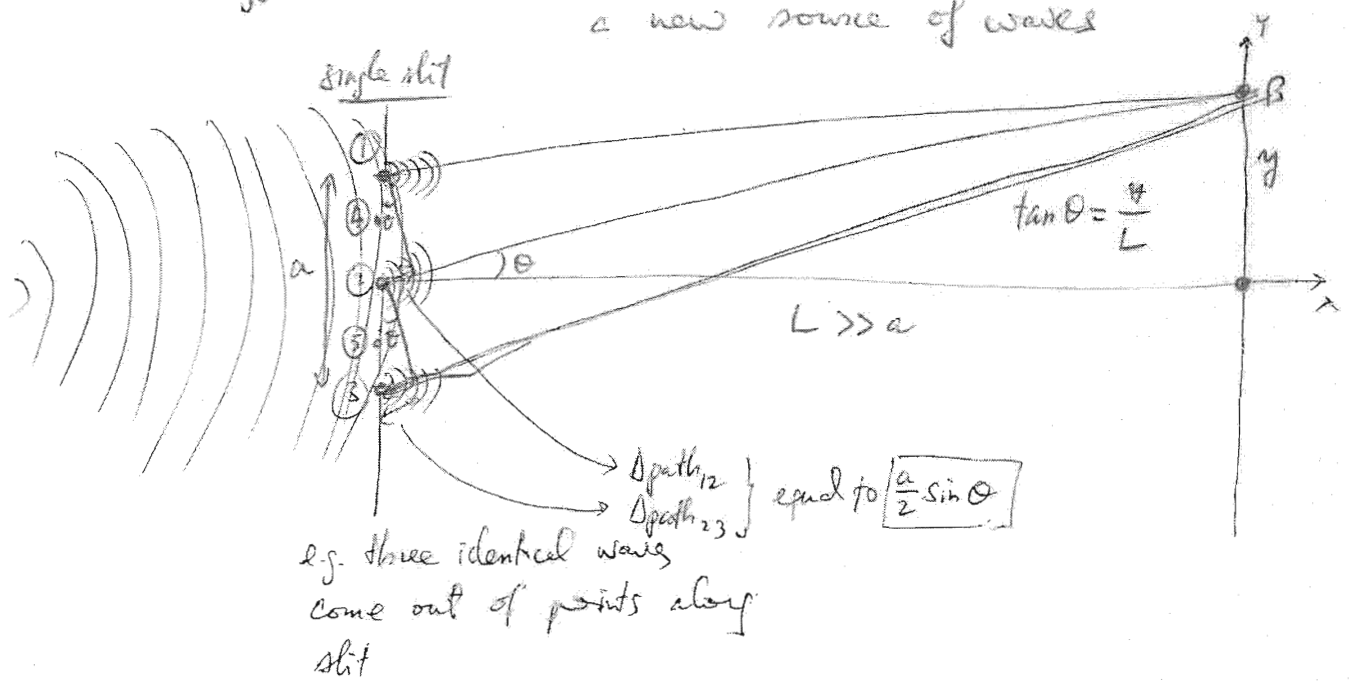 a new source of waves
single slit
Y
B
y
1
4
a
2
θ
tan θ = y/L
x
L >> a
5
3
Δpath₁₂
Δpath₂₃ } equal to a/2 sin θ
e.g. three identical waves
come out of points along
slit